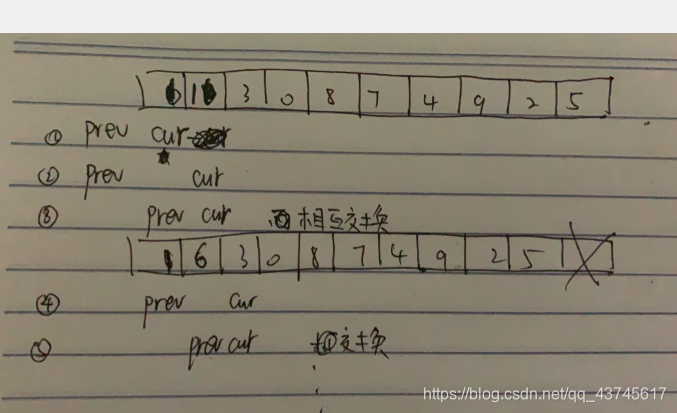 6 1 3 0 8 7 4 9 2 5
① prev cur
② prev cur
③ prev cur 相互交换
1 6 3 0 8 7 4 9 2 5
④ prev cur
⑤ prev cur 交换
https://blog.csdn.net/qq_43745617